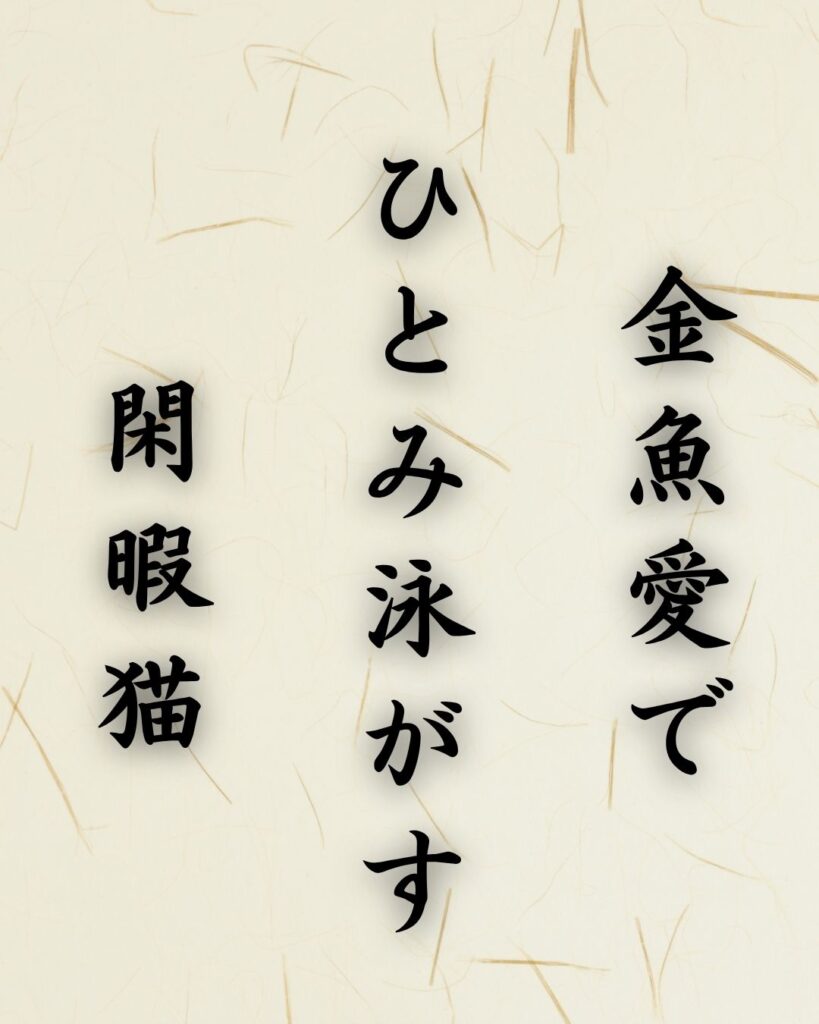 金魚愛で
ひとみ泳がす
閑暇猫